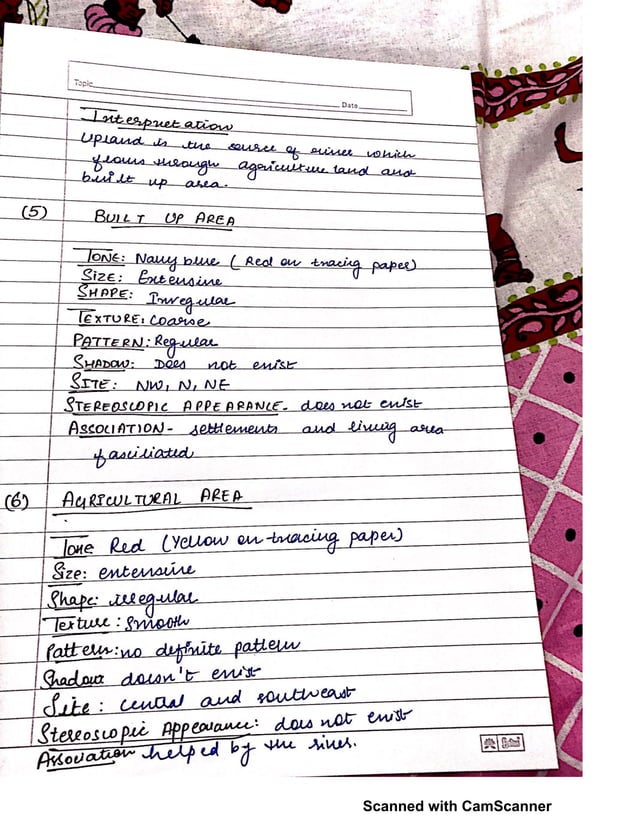 Topic
Date
Interpretation
Upland is the source of river which
flows through agriculture land and
built up area.
(5) BUILT UP AREA
TONE: Navy blue (Red on tracing paper)
SIZE: Extensive
SHAPE: Irregular
TEXTURE: Coarse
PATTERN: Regular
SHADOW: Does not exist
SITE: NW, N, NE
STEREOSCOPIC APPEARANCE- does not exist
ASSOCIATION- settlements and living area
fasciliated
(6) AGRICULTURAL AREA
Tone Red (Yellow on tracing paper)
Size: extensive
Shape: irregular
Texture: Smooth
Pattern: no definite pattern
Shadow doesn't exist
Site: central and southeast
Stereoscopic Appearance: does not exist
Association helped by the rivers.
Scanned with CamScanner